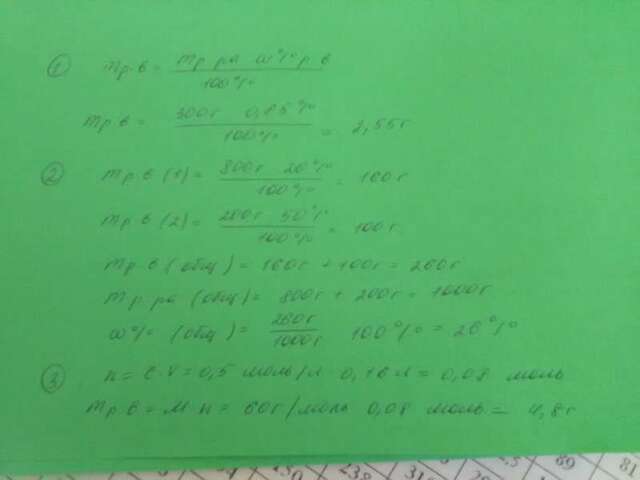 ① m р.в = m р-ра ω% р.в / 100%
m р.в = 300г 0,85% / 100% = 2,55г
② m р.в (1) = 800г 20% / 100% = 160г
m р.в (2) = 200г 50% / 100% = 100г
m р.в (общ) = 160г + 100г = 260г
m р-ра (общ) = 800г + 200г = 1000г
ω% (общ) = 260г / 1000г 100% = 26%
③ n = C·V = 0,5 моль/л · 0,16 л = 0,08 моль
m р.в = M·n = 60г/моль 0,08 моль = 4,8г
230 238 89 81